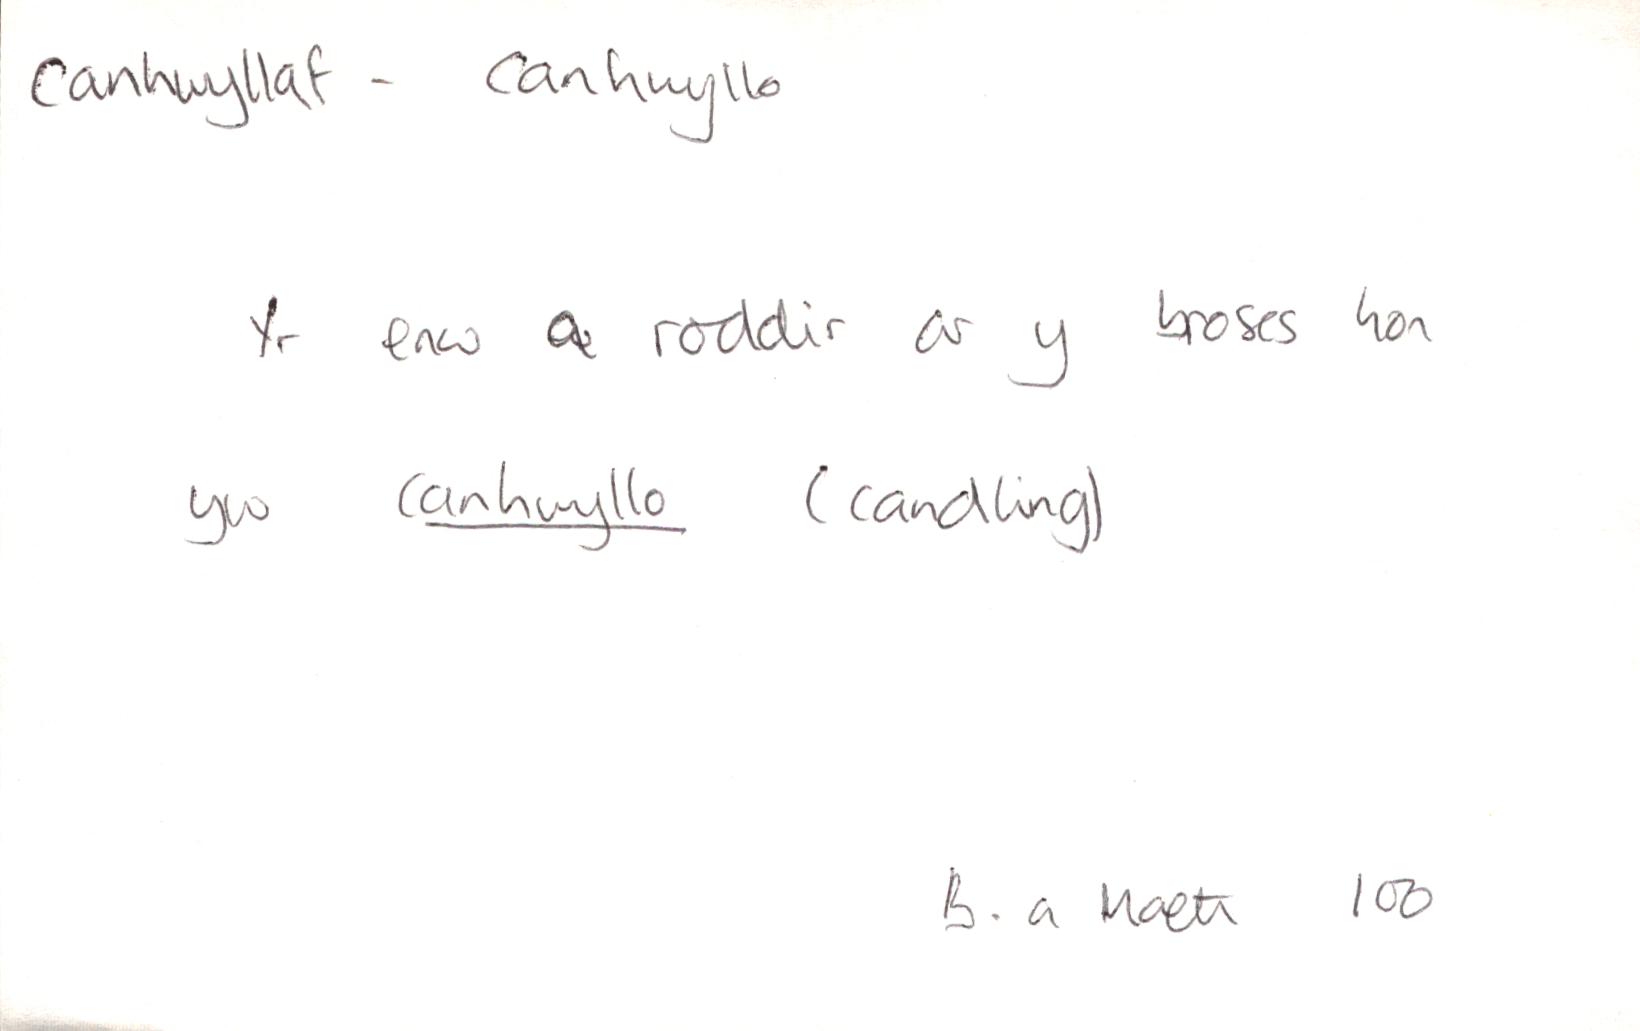 Canhwyllaf - Canhwyllo
Yr enw a roddir ar y broses hon
yw canhwyllo (candling)
B. a Maeth 100